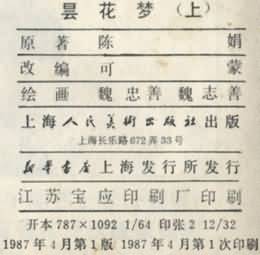 昙花梦（上）
原著 陈娟
改编 可蒙
绘画 魏忠善 魏志善
上海人民美术出版社出版
上海长乐路672弄33号
新华书店上海发行所发行
江苏宝应印刷厂印刷
开本787×1092 1/64 印张2 12/32
1987年4月第1版 1987年4月第1次印刷